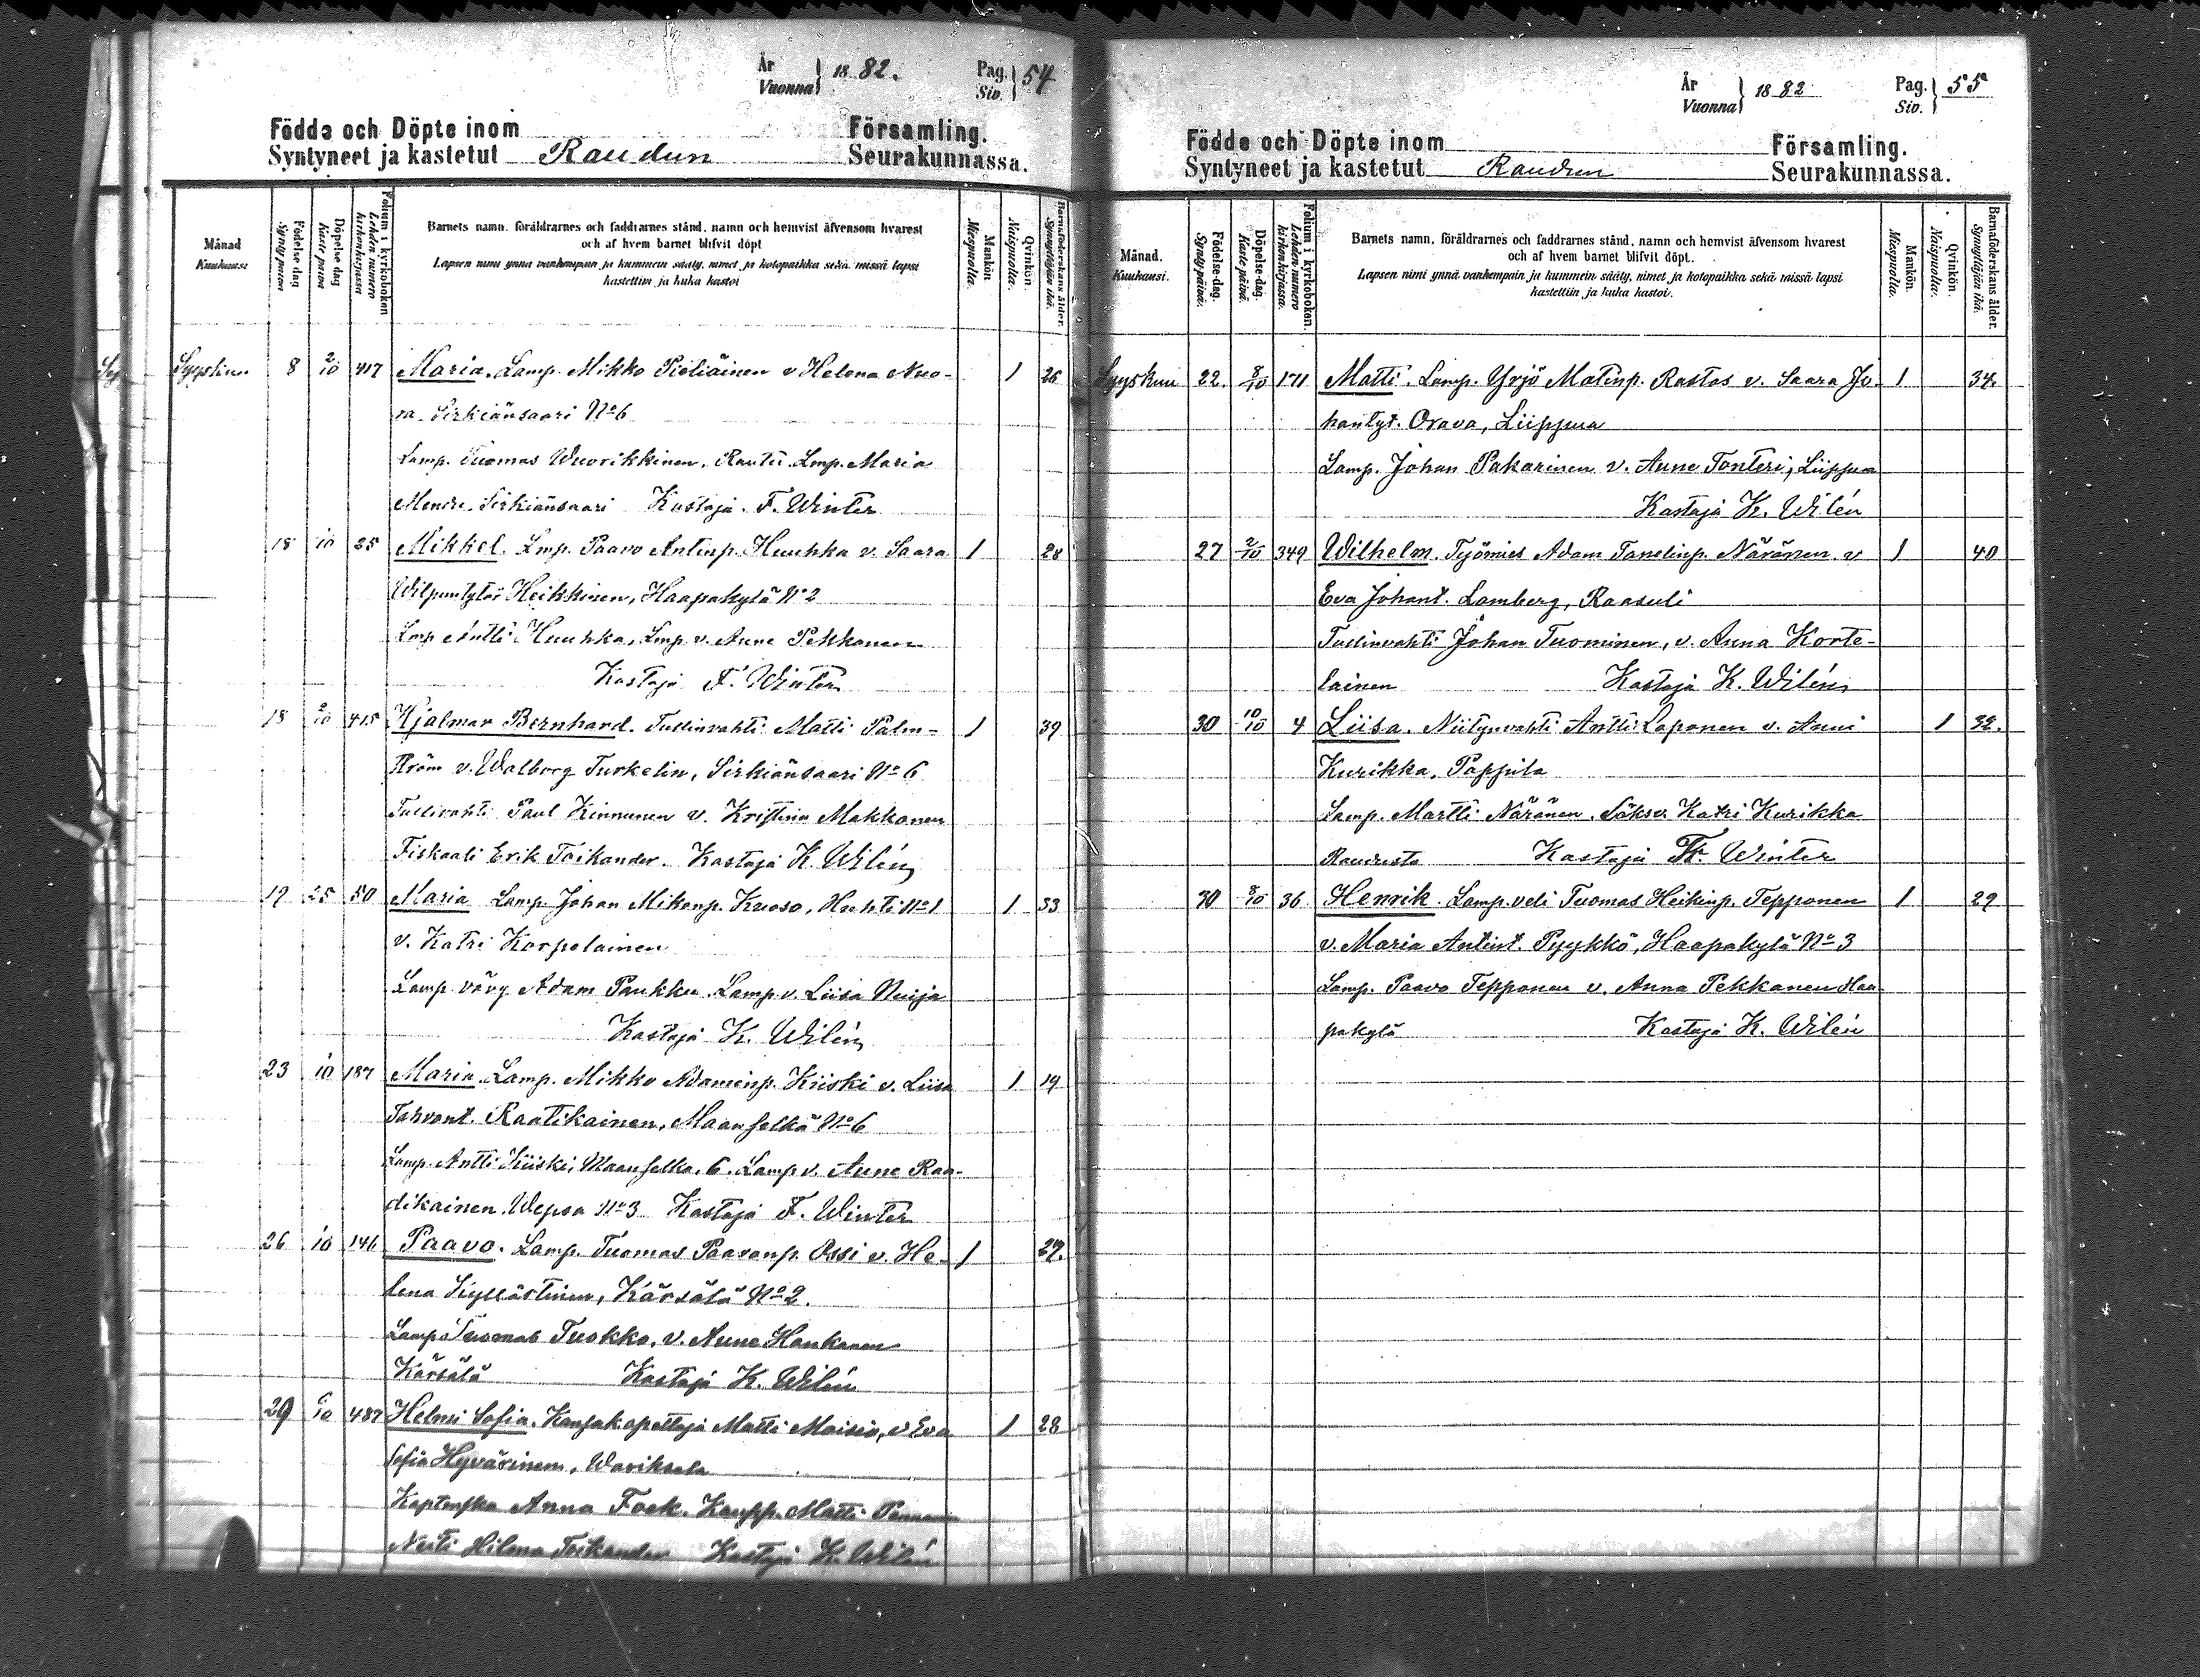 År
Vuonna 1882.
Pag.
Siv. 54
Födda och Döpte inom Församling.
Syntyneet ja kastetut Raudun Seurakunnassa.
Månad
Kuukausi
Födelse dag
Synty päivä
Döpelse dag
Kaste päivä
Folium i kyrkoboken
Lehden numero kirkonkirjassa
Barnets namn, föräldrarnes och faddrarnes stånd, namn och hemvist äfvensom hvarest
och af hvem barnet blifvit döpt
Lapsen nimi ynnä vanhempain ja kummein sääty, nimet ja kotopaikka sekä missä lapsi
kastettiin ja kuka kastoi
Mankön
Miespuolta.
Qvinkön.
Naispuolta.
Barnaföderskans ålder.
Synnyttäjän ikä.
Syyskuu 8 2/10 417 Maria. Lamp. Mikko Pieliäinen v Helena Nuo- 1 26
ra. Sirkiänsaari No 6
Lamp. Tuomas Wuorikkinen, Rautu. Lmp. Maria
Sirkiänsaari Kastaja F. Winter
18 10 25 Mikkel. Lmp. Paavo Antinp. Huuhka v. Saara 1 28
Wilpuntytär Heikkinen, Haapakylä No 2
Lmp Antti Huuhka, Lmp. v. Anne Pekkanen
Kastaja F. Winter
18 2/10 415 Hjalmar Bernhard. Tullinvahti Matti Palm- 1 39
ström v. Walborg Turkelin, Sirkiänsaari No 6
Tullivahti Paul Kinnunen v. Kristina Makkonen
Fiskaali Erik Toikander. Kastaja K. Wilén
19 25 50 Maria Lamp. Johan Mikonp. Kuoso, Huhti No 1 1 33
v. Katri Korpelainen
Lamp vävy Adam Paukku. Lamp v. Liisa Nuija
Kastaja K. Wilén
23 10 187 Maria. Lamp. Mikko Adaminp. Kiiski v. Liisa 1 19
Tahvant. Raatikainen, Maanselkä No 6
Lamp. Antti Kiiski, Maanselka. 6. Lamp v. Anne Raa-
dikainen. Wepsa No 3 Kastaja F. Winter
26 10 146 Paavo. Lamp. Tuomas Paavonp. Ossi v. He- 1 27.
lena Kyllästinen, Kärsälä No 2.
Lamp. Tuomas Tuokko, v. Anna Haukanen
Kärsälä Kastaja K. Wilén
29 6/10 487 Helmi Sofia. Kansakopettaja Matti Moisio, v Eva 1 28
Sofia Hyvärinen, Wariksela
Kaptenska Anna Fock. Kaupp. Matti
Neiti Hilma Toikander Kastaja K. Wilén
År
Vuonna 1882
Pag.
Siv. 55
Födde och Döpte inom Församling.
Syntyneet ja kastetut Raudun Seurakunnassa.
Månad.
Kuukausi.
Födelse-dag.
Syntypäivä.
Döpelse-dag.
Kaste päivä.
Folium i kyrkoboken.
Lehden numero kirkonkirjassa.
Barnets namn, föräldrarnes och faddrarnes stånd, namn och hemvist äfvensom hvarest
och af hvem barnet blifvit döpt.
Lapsen nimi ynnä vanhempain ja kummein sääty, nimet ja kotopaikka sekä missä lapsi
kastettiin ja kuka kastoi.
Mankön.
Miespuolta.
Qvinkön.
Naispuolta.
Barnaföderskans ålder.
Synnyttäjän ikä.
Syyskuu 22 8/10 171 Matti. Lamp. Yrjö Matinp. Rastas v. Saara Jo- 1 34.
hantyt. Orava, Liippua
Lamp. Johan Pakarinen v. Anne Tonteri, Liippua
Kastaja K. Wilén
27 2/10 349 Wilhelm. Työmies Adam Tanelinp. Näränen v 1 40
Eva Johant. Lamberg, Raasuli
Tullinvahti Johan Tuominen, v. Anna Korte-
lainen Kastaja K. Wilén
30 10/10 4 Liisa. Niitynvahti Antti Loponen v. Anni 1 32.
Kurikka, Pappila
Lamp. Martti Näränen. Katri Kurikka
Raudusta Kastaja Fr. Winter
30 8/10 36 Henrik. Lamp. veli Tuomas Heikinp. Tepponen 1 29
v. Maria Antint. Pyykkö, Haapakylä No 3
Lamp. Paavo Tepponen v. Anna Pekkanen Haa
pakylä Kastaja K. Wilén